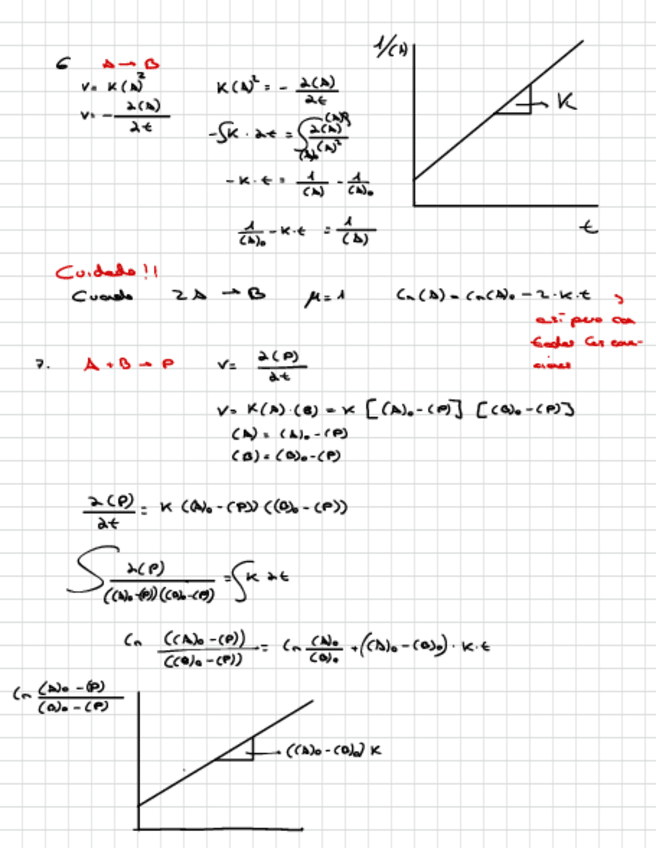 6 A → B
v = K(A)²
v = - ∂(A)/∂t
K(A)² = - ∂(A)/∂t
-∫K · ∂t = ∫ ∂(A)/(A)²
-K·t = 1/(A) - 1/(A)₀
1/(A)₀ - K·t = 1/(A)
1/(A)
K
t
Cuidado!!
Cuando 2A → B μ=1 Ln(A) = Ln(A)₀ - 2·K·t
así pero con
todas las ecua-
ciones
7. A + B → P v = ∂(P)/∂t
v = K(A)·(B) = K [(A)₀-(P)] [(B)₀-(P)]
(A) = (A)₀-(P)
(B) = (B)₀-(P)
∂(P)/∂t = K (A)₀-(P)) ((B)₀-(P))
∫ ∂(P)/((A)₀-(P))((B)₀-(P)) = ∫K ∂t
Ln ((A)₀-(P))/((B)₀-(P)) = Ln (A)₀/(B)₀ + ((A)₀-(B)₀)·K·t
Ln (A)₀-(P)/(B)₀-(P)
((A)₀-(B)₀) K